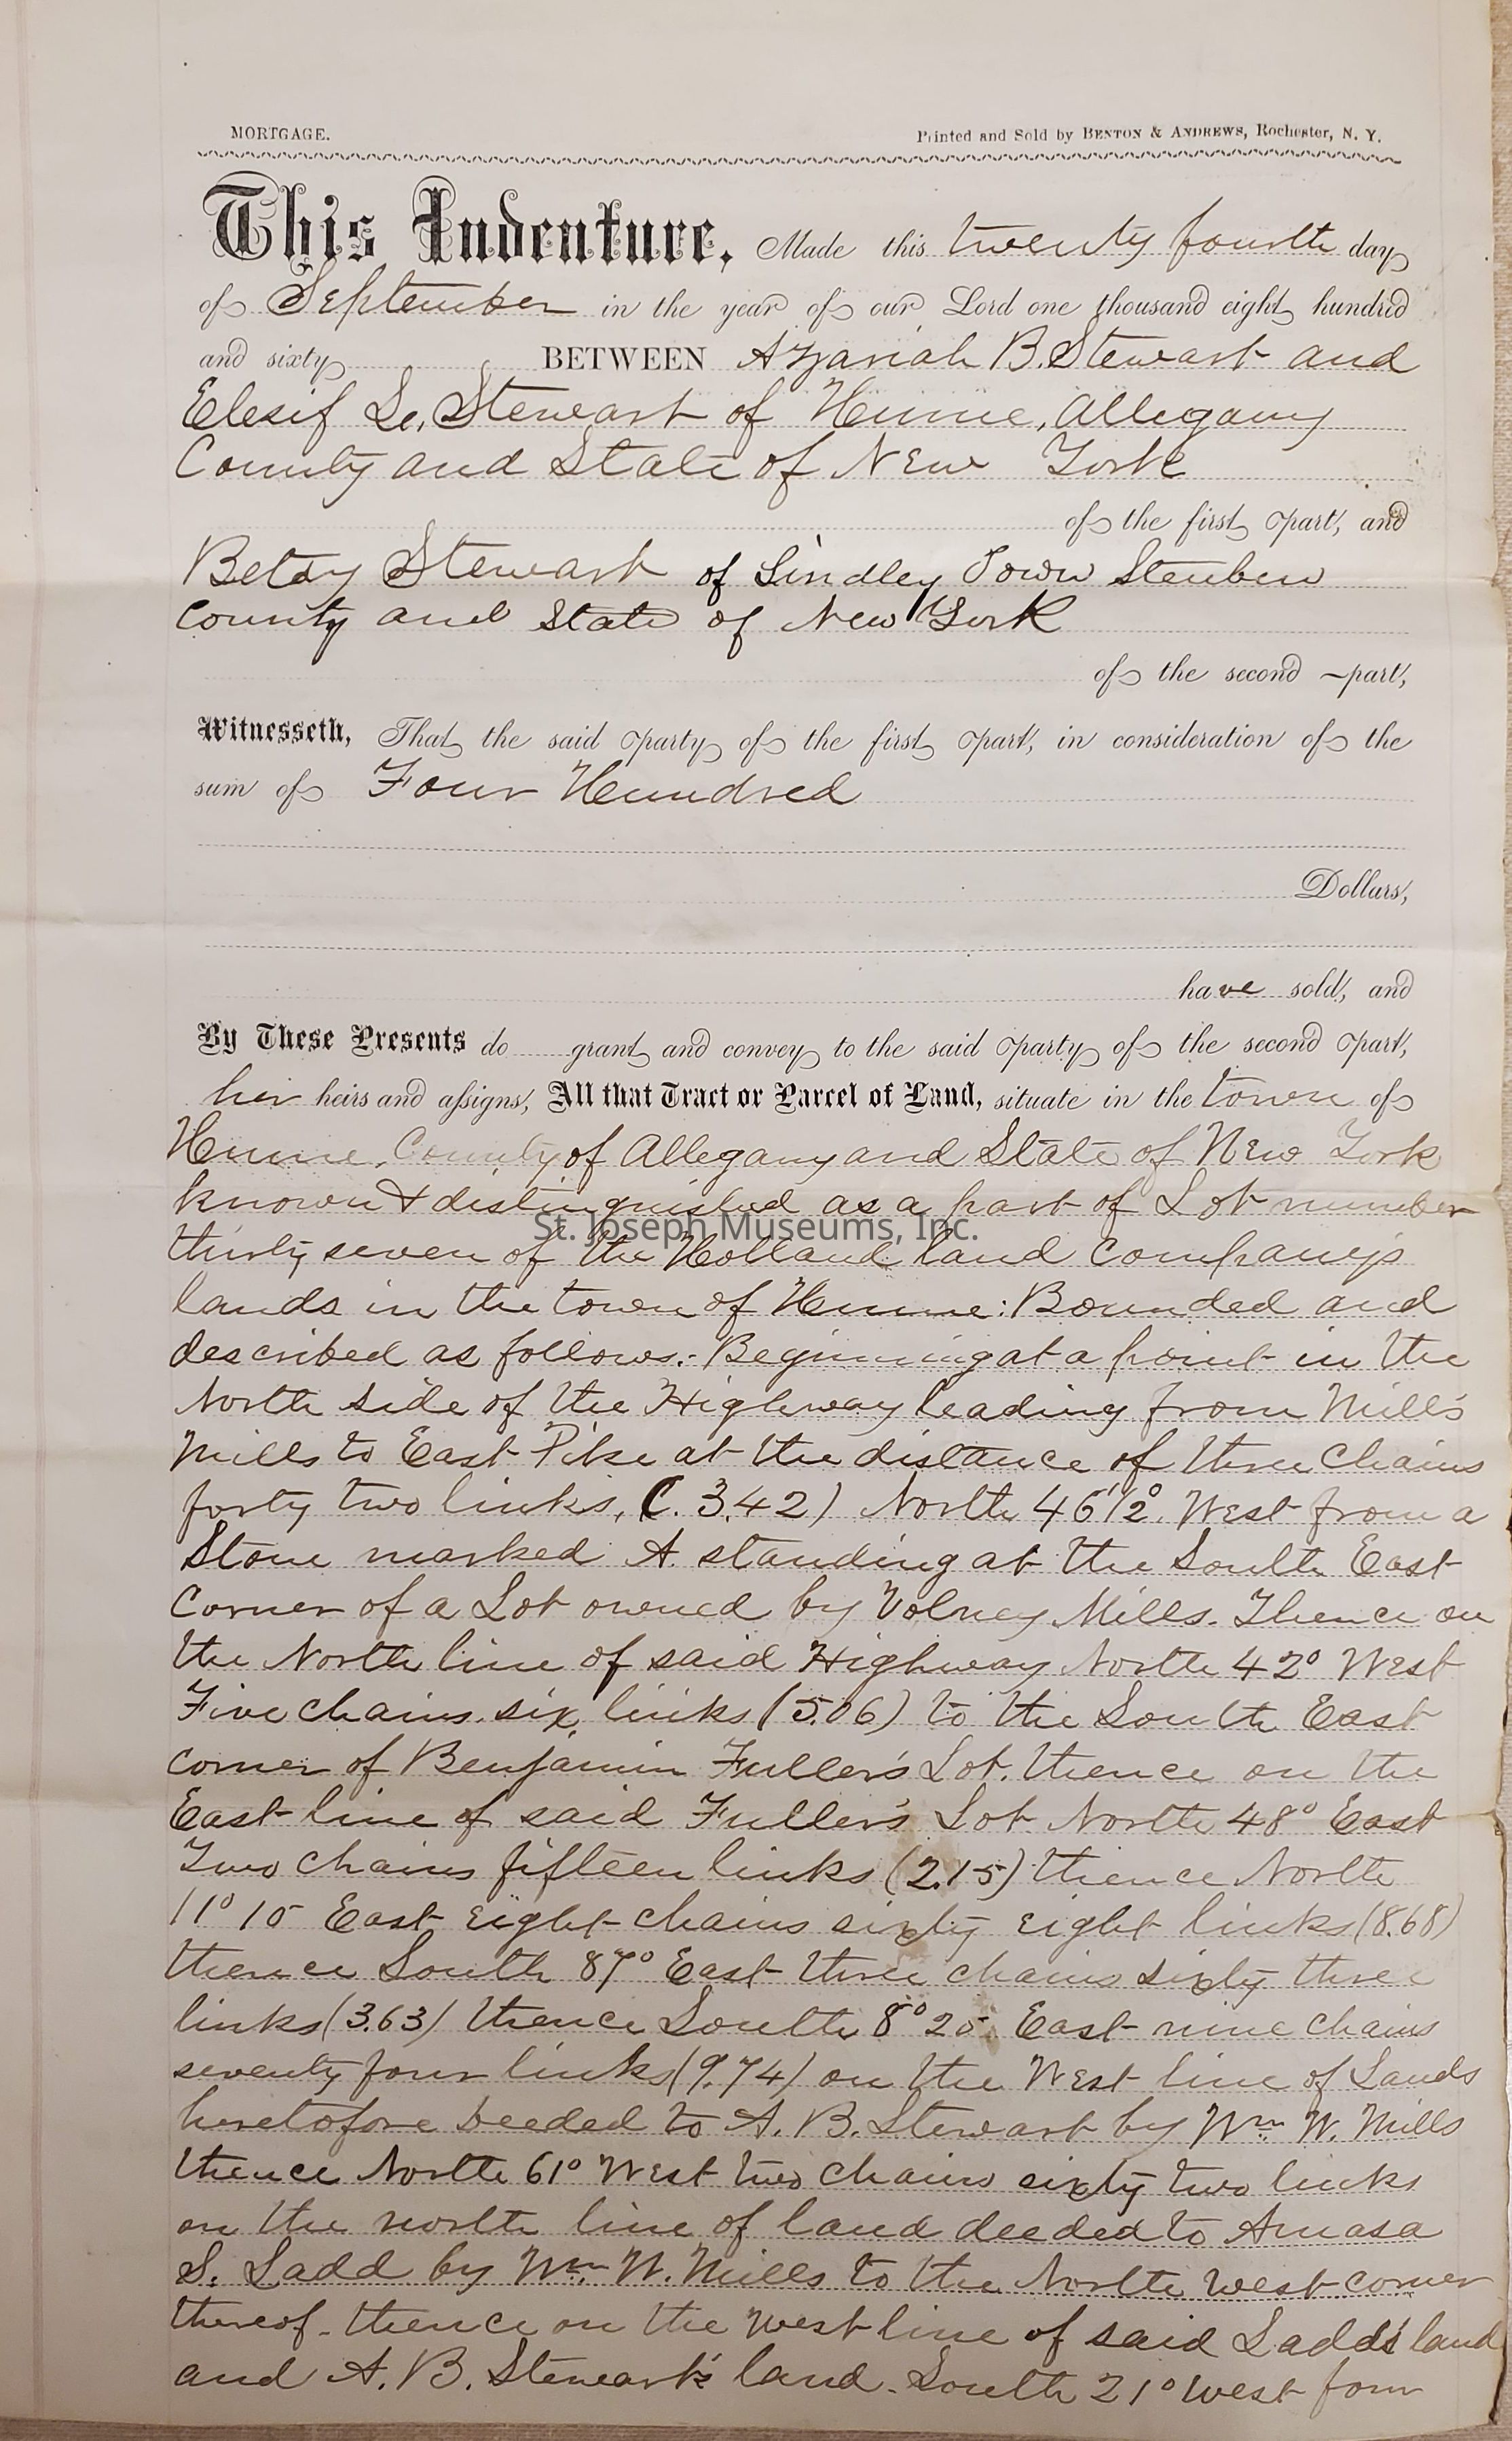 MORTGAGE. Printed and Sold by BENTON & ANDREWS, Rochester, N. Y.
This Indenture, Made this twenty fourth day
of September in the year of our Lord one thousand eight hundred
and sixty BETWEEN Azariah B. Stewart and
Elesif L. Stewart of Hume, Allegany
County and State of New York
of the first part, and
Betsy Stewart of Lindley Town Steuben
County and State of New York
of the second part,
Witnesseth, That the said party of the first part, in consideration of the
sum of Four Hundred
Dollars,
have sold, and
By These Presents do grant and convey to the said party of the second part,
her heirs and assigns, All that Tract or Parcel of Land, situate in the town of
Hume, County of Allegany and State of New York
known & distinguished as a part of Lot number
St. Joseph Museums, Inc.
thirty seven of the Holland land Company's
lands in the town of Hume: Bounded and
described as follows:- Beginning at a point in the
North side of the Highway leading from Mill's
Mills to East Pike at the distance of three Chains
forty two links, (. 3.42) North 46 1/2°. West from a
Stone marked A. standing at the South East
Corner of a Lot owned by Volney Mills. Thence on
the North line of said Highway North 42° West
Five chains six links (5.06) to the South East
corner of Benjamin Fuller's Lot. thence on the
East line of said Fuller's Lot North 48° East
Two chains fifteen links (2.15) thence North
11° 15 East eight chains sixty eight links (8.68)
thence South 87° East three chains sixty three
links (3.63) thence South 8° 25 East nine chains
seventy four links (9.74) on the West line of Lands
heretofore deeded to A. B. Stewart by Wm. W. Mills
thence North 61° West two chains sixty two links
on the north line of land deeded to Amasa
S. Ladd by Wm. W. Mills to the North west corner
thereof. thence on the west line of said Ladd's land
and A. B. Stewart's land. South 21° west four